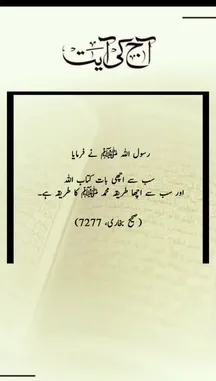 آج کی آیت
رسول اللہ ﷺ نے فرمایا
سب سے اچھی بات کتاب اللہ
اور سب سے اچھا طریقہ محمد ﷺ کا طریقہ ہے۔
(صحیح بخاری، 7277)